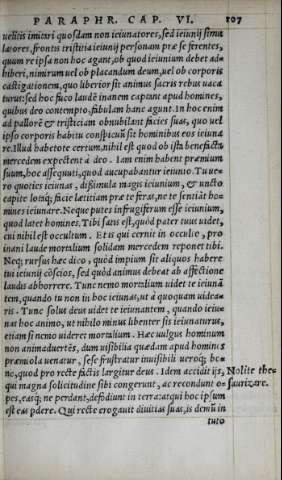 PARAPHR. CAP. VI. 107
uelitis imitari quosdam non ieiunatores, sed ieiunij simu
latores, frontis tristitia ieiunij personam præ se ferentes,
quum re ipsa non hoc agant, ob quod ieiunium debet ad=
hiberi, nimirum uel ob placandum deum, uel ob corporis
castigationem, quo liberior sit animus sacris rebus uaca
turus: sed hoc fuco laudē inanem captant apud homines,
quibus deo contempto, fabulam hanc agunt. In hoc enim
ad pallorē & tristiciam obnubilant facies suas, quo uel
ipso corporis habitu conspicuū sit hominibus eos ieiuna
re. Illud habetote certum, nihil est quod ob ista benefacta
mercedem expectent à deo. Iam enim habent præmium
suum, hoc assequuti, quod aucupabantur ieiunio. Tu ue=
ro quoties ieiunas, dissimula magis ieiunium, & uncto
capite lotáq; facie lætitiam præ te feras, ne te sentiāt ho=
mines ieiunare. Neque putes infrugiferum esse ieiunium,
quod latet homines. Tibi satis est, quod pater tuus uidet,
cui nihil est occultum. Et is qui cernit in occulto, pro
inani laude mortalium solidam mercedem reponet tibi.
Neq; rursus hæc dico, quòd impium sit aliquos habere
tui ieiunij cōscios, sed quòd animus debeat ab affectione
laudis abhorrere. Tunc nemo mortalium uidet te ieiunā
tem, quando tu non in hoc ieiunas, ut à quoquam uidea=
ris. Tunc solus deus uidet te ieiunantem, quando ieiu=
nas hoc animo, ut nihilo minus libenter sis ieiunaturus,
etiam si nemo uideret mortalium. Hæc uulgus hominum
non animaduertēs, dum uisibilia quædam apud homines
præmia uenatur, sese frustratur inuisibili ueroq; bo=
no, quod pro recte factis largitur deus. Idem accidit ijs, Nolite the=
qui magna solicitudine sibi congerunt, ac recondunt o= saurizare.
pes, easq; ne perdant, defodiunt in terra: atqui hoc ipsum
est eas pdere. Qui recte erogauit diuitias suas, is demū in
tuto